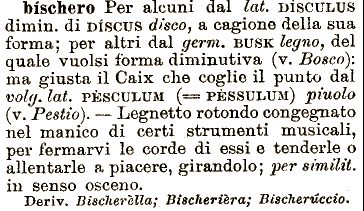 bíschero Per alcuni dal lat. DISCULUS
dimin. di DÍSCUS disco, a cagione della sua
forma; per altri dal germ. BUSK legno, del
quale vuolsi forma diminutiva (v. Bosco):
ma giusta il Caix che coglie il punto dal
volg. lat. PÈSCULUM (= PÈSSULUM) piuolo
(v. Pestio). — Legnetto rotondo congegnato
nel manico di certi strumenti musicali,
per fermarvi le corde di essi e tenderle o
allentarle a piacere, girandolo; per similit.
in senso osceno.
Deriv. Bischerèlla; Bischerièra; Bischerúccio.